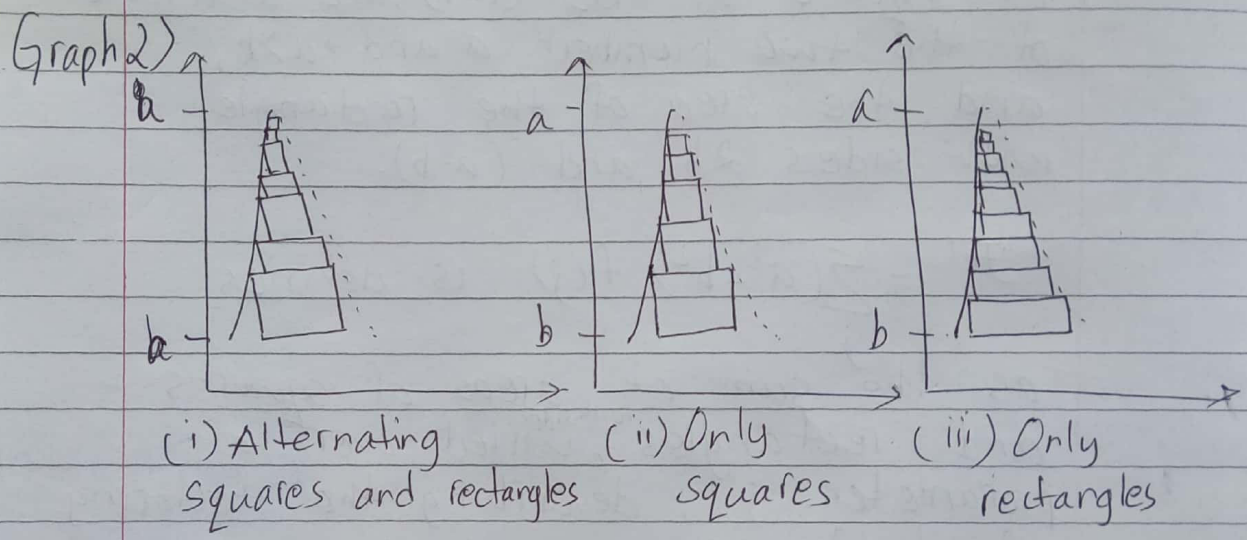 Graph 2)
a
b
a
b
a
b
(i) Alternating
squares and rectangles
(ii) Only
squares
(iii) Only
rectangles